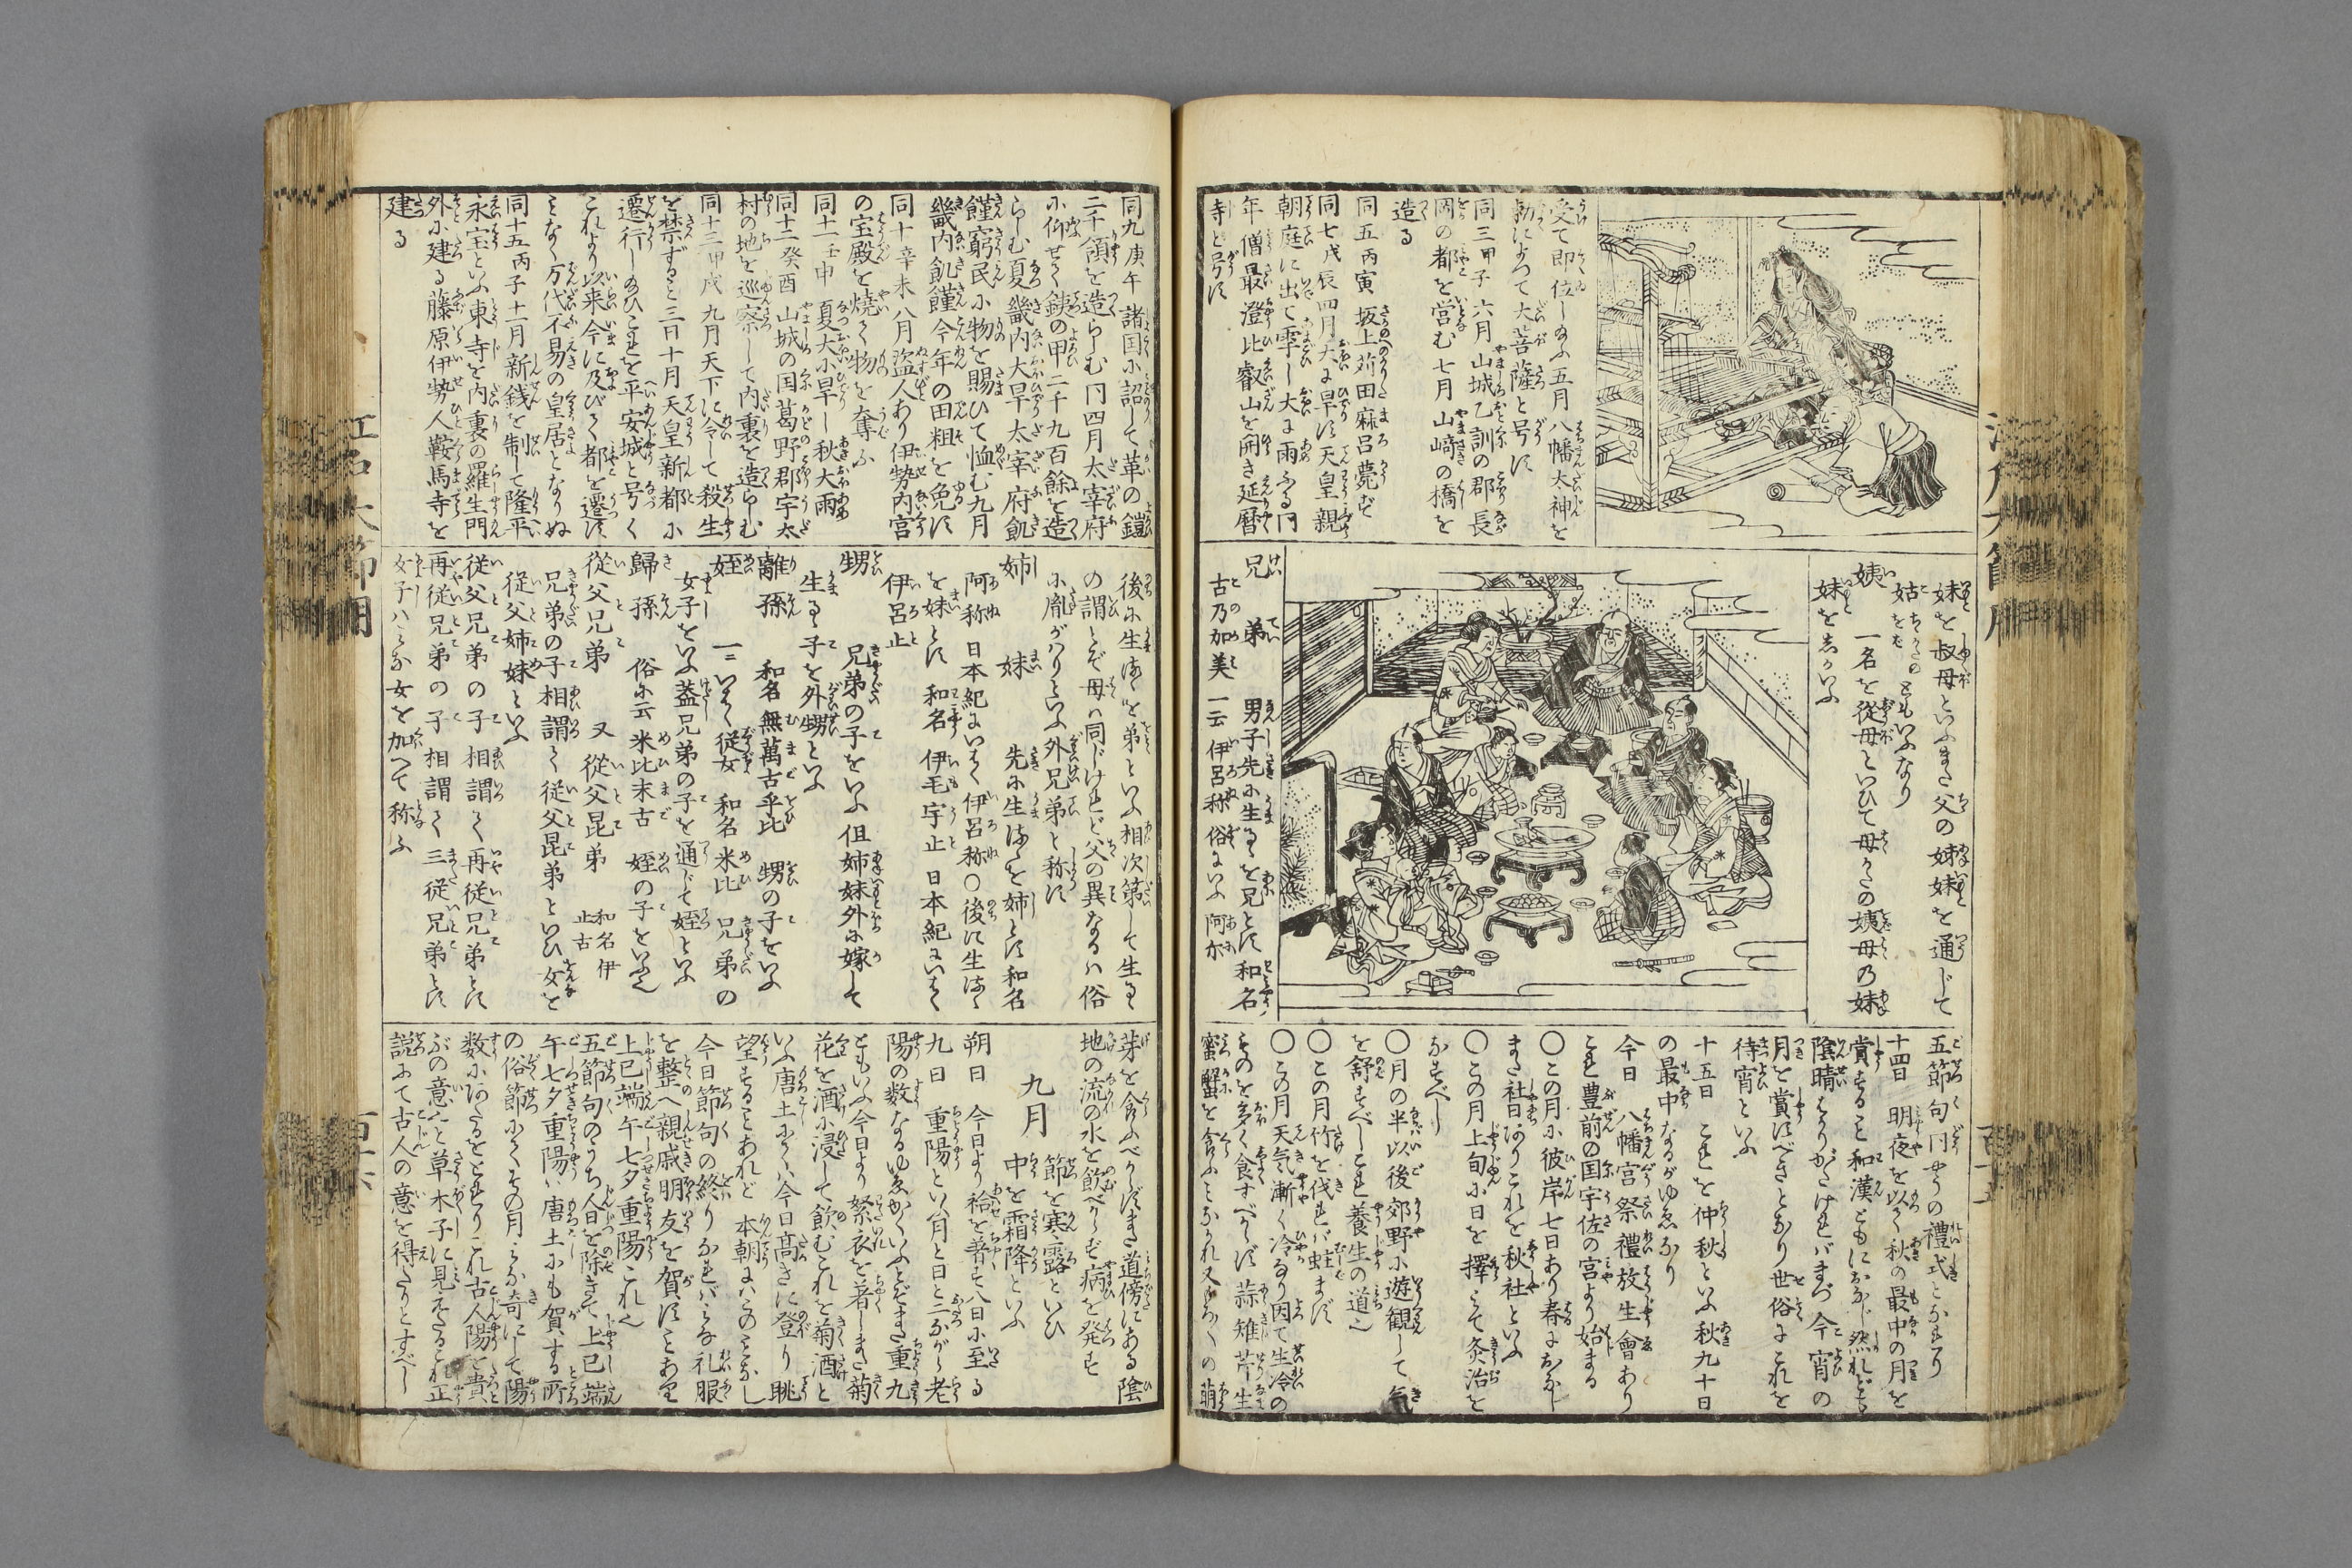 受て即位し給ふ五月八幡太神を
勅によつて大菩薩と号す
同三甲子 六月山城乙訓の郡長
岡の都を営む七月山﨑の橋を
造る
同五丙寅 坂上苅田麻呂薨ず
同七戊辰四月大に旱す天皇親
朝庭に出て雩し大に雨ふる同
年僧最澄比叡山を開き延暦
寺と号す
妹を叔母といふまた父の姉妹を通じて
姑ともいふなり
姨 一名を従母といひて母かたの姨母乃妹
妹をしかいふ
兄 弟 男子先に生るゝを兄とす 和名
古乃加美 一云 伊呂称 俗にいふ 阿尓
五節句同やうの禮式とかれり
十四日 明夜を以て秋の最中の月を
賞すること和漢ともにおなじ然れども
陰晴はかりがたければまづ今宵の
月を賞すべきとなり世俗にこれを
待宵といふ
十五日 これを仲秋といふ秋九十日
の最中なるがゆゑなり
今日 八幡宮祭禮放生會あり
これ豊前の国宇佐の宮より始まる
〇この月に彼岸七日あり春におなじ
また社日ありこれを秋社といふ
〇この月上旬に日を擇みて灸治を
なすべし
〇月の半以後郊野に遊観して氣
を舒すべしこれ養生の道也
〇この月竹を伐れば蛀まず
〇この月天気漸く冷なり因て生冷の
ものを多く食すべからず 蒜雉芹生
蜜蟹を食ふことなかれ又もろ〳〵の萌
同九庚午 諸国に詔して革の鎧
二千領を造らしむ同四月太宰府
に仰せて鉄の甲二千九百餘を造
らしむ夏畿内大旱太宰府飢
饉窮民に物を賜ひて恤む九月
畿内飢饉今年の田粗を免す
同十辛未八月盗人あり伊勢内宮
の宝殿を焼て物を奪ふ
同十一壬申 夏大に旱し秋大雨
同十二癸酉 山城の国葛野郡宇太
村の地を巡察して内裏を造らしむ
同十三甲戌 九月天下に令して殺生
を禁ずること三日十月天皇新都に
遷行し給ひこれを平安城と号く
これより以来今に及びて都を遷す
ことなく万代不易の皇居となりぬ
同十五丙子十一月新銭を制て隆平
永宝といふ東寺を内裏の羅生門
外に建る藤原伊勢人鞍馬寺を
建る
後に生るゝを弟といふ相次第して生るゝ
の謂とぞ母は同じけれど父の異なるハ俗
に胤がハりといふ外兄弟と称す
姉 妹 先に生るゝを姉とす和名
阿称 日本紀にいはく伊呂称〇後に生るゝ
を妹とす 和名 伊毛宇止 日本紀にいはく
伊呂止
甥 兄弟の子をいふ 但姉妹外に嫁して
生るゝ子を外甥といふ
離孫 和名 無萬古乎比 甥の子をいふ
姪 一ニいはく従女 和名 米比 兄弟の
女子をいふ蓋兄弟の子を通じて姪といふ
歸孫 俗に云 米比末古 姪の子をいふ也
従父兄弟 又 従父昆弟 和名伊止古
兄弟の子相謂て従父昆弟といひ女を
従父姉妹といふ
従父兄弟の子相謂て再従兄弟とす
再従兄弟の子相謂て三従兄弟とす
女子ハみな女を加へて称ふ
芽を食ふべからずまた道傍にある陰
地の流の水を飲べからず病を発す
九月 節を寒露といひ 中を霜降といふ
朔日 今日より袷を著す八日に至る
九日 重陽といふ月と日と二ながら老
陽の数なるゆゑかくいふとぞまた重九
ともいふ今日より絮衣を著しまた菊
花を酒に浸して飲むこれを菊酒と
いふ唐土にてハ今日髙きに登り眺
望することあれど 本朝にハこのことなし
今日節句の終りなればみな礼服
を整へ親戚朋友を賀すことあり
上巳端午七夕重陽これ也
五節句のうち人日を除きて上巳端
午七夕重陽ハ唐土にも賀する所
の俗節にてその月みな奇にして陽
数にあたるをとれりこれ古人陽を貴
ぶの意也と草木子に見えたるこれ正
説にて古人の意を得たりとすべし